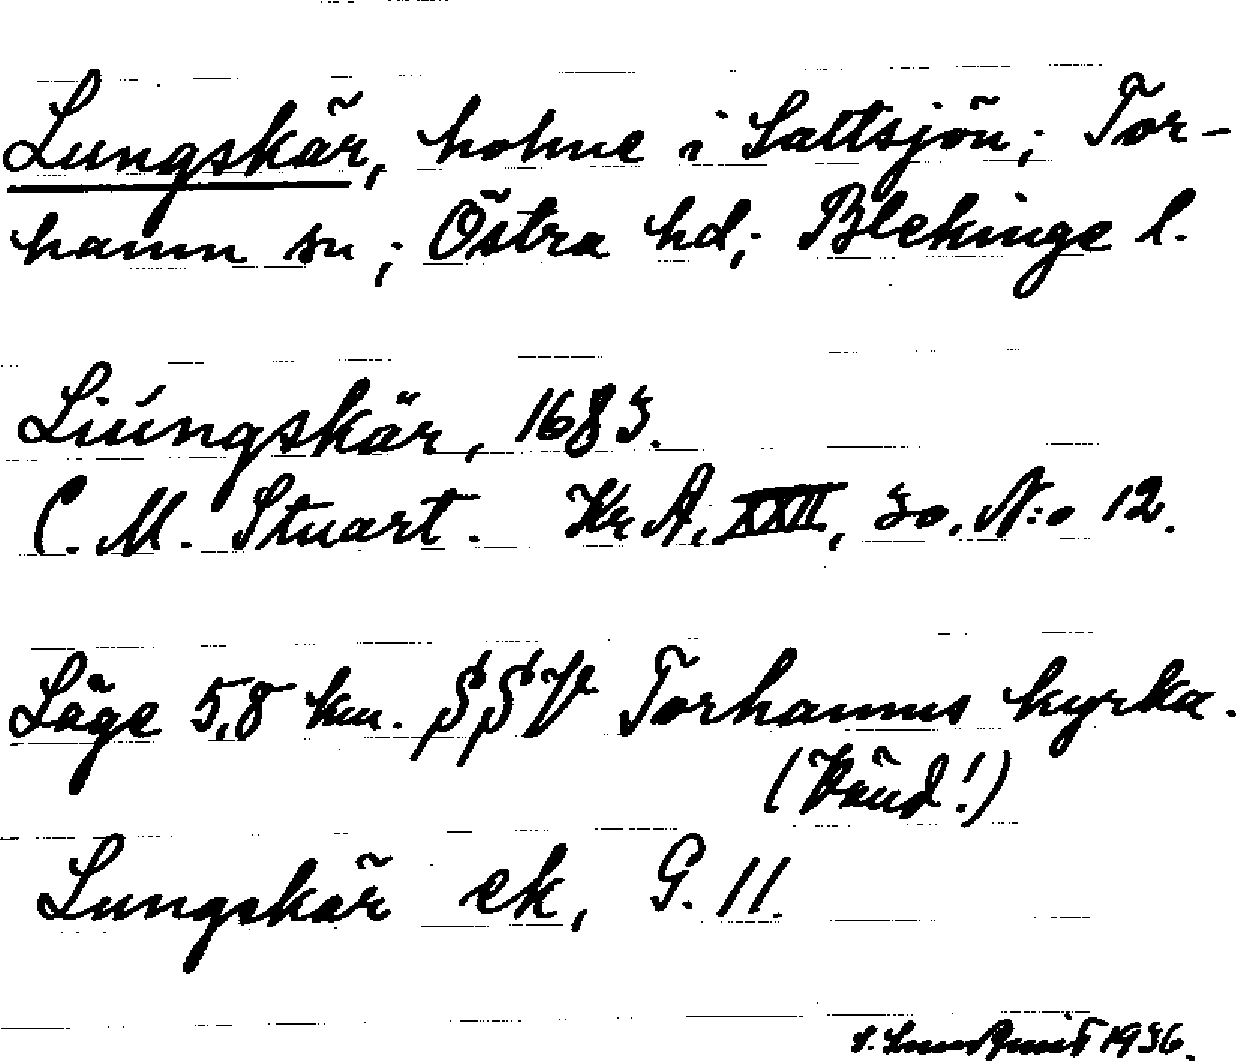 Lungskär, holme i Saltsjön; Tor-
hamn sn; Östra hd; Blekinge l.
Liúngskär, 1683.
C. M. Stuart. Kr A, XXII, 30. N:o 12.
Läge 5,8 km. SSV Torhamns kyrka.
(Vänd!)
Lungskär ek, G. 11.
1936.